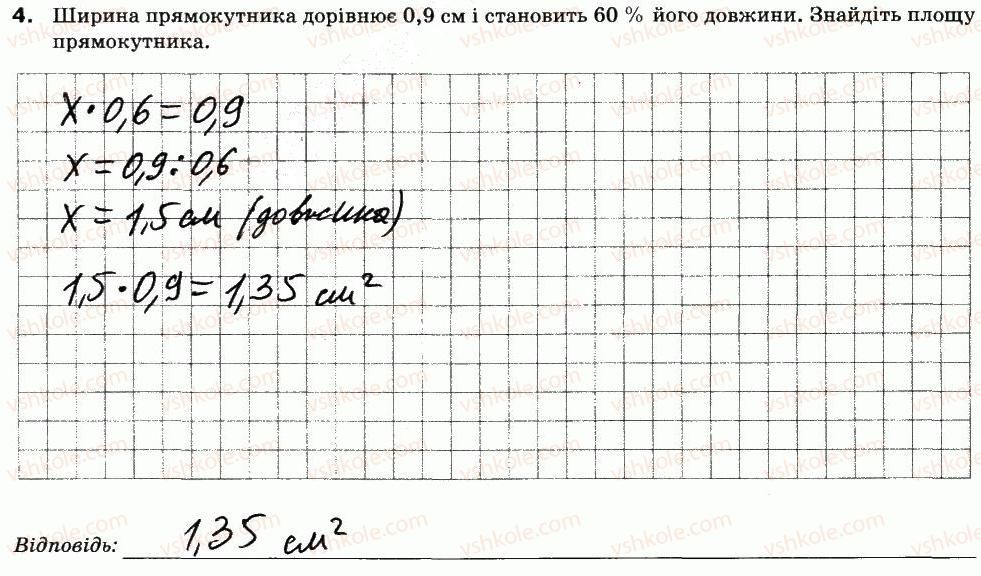 4. Ширина прямокутника дорівнює 0,9 см і становить 60 % його довжини. Знайдіть площу
прямокутника.
x · 0,6 = 0,9
x = 0,9 : 0,6
x = 1,5 см (довжина)
1,5 · 0,9 = 1,35 см²
Відповідь: 1,35 см²